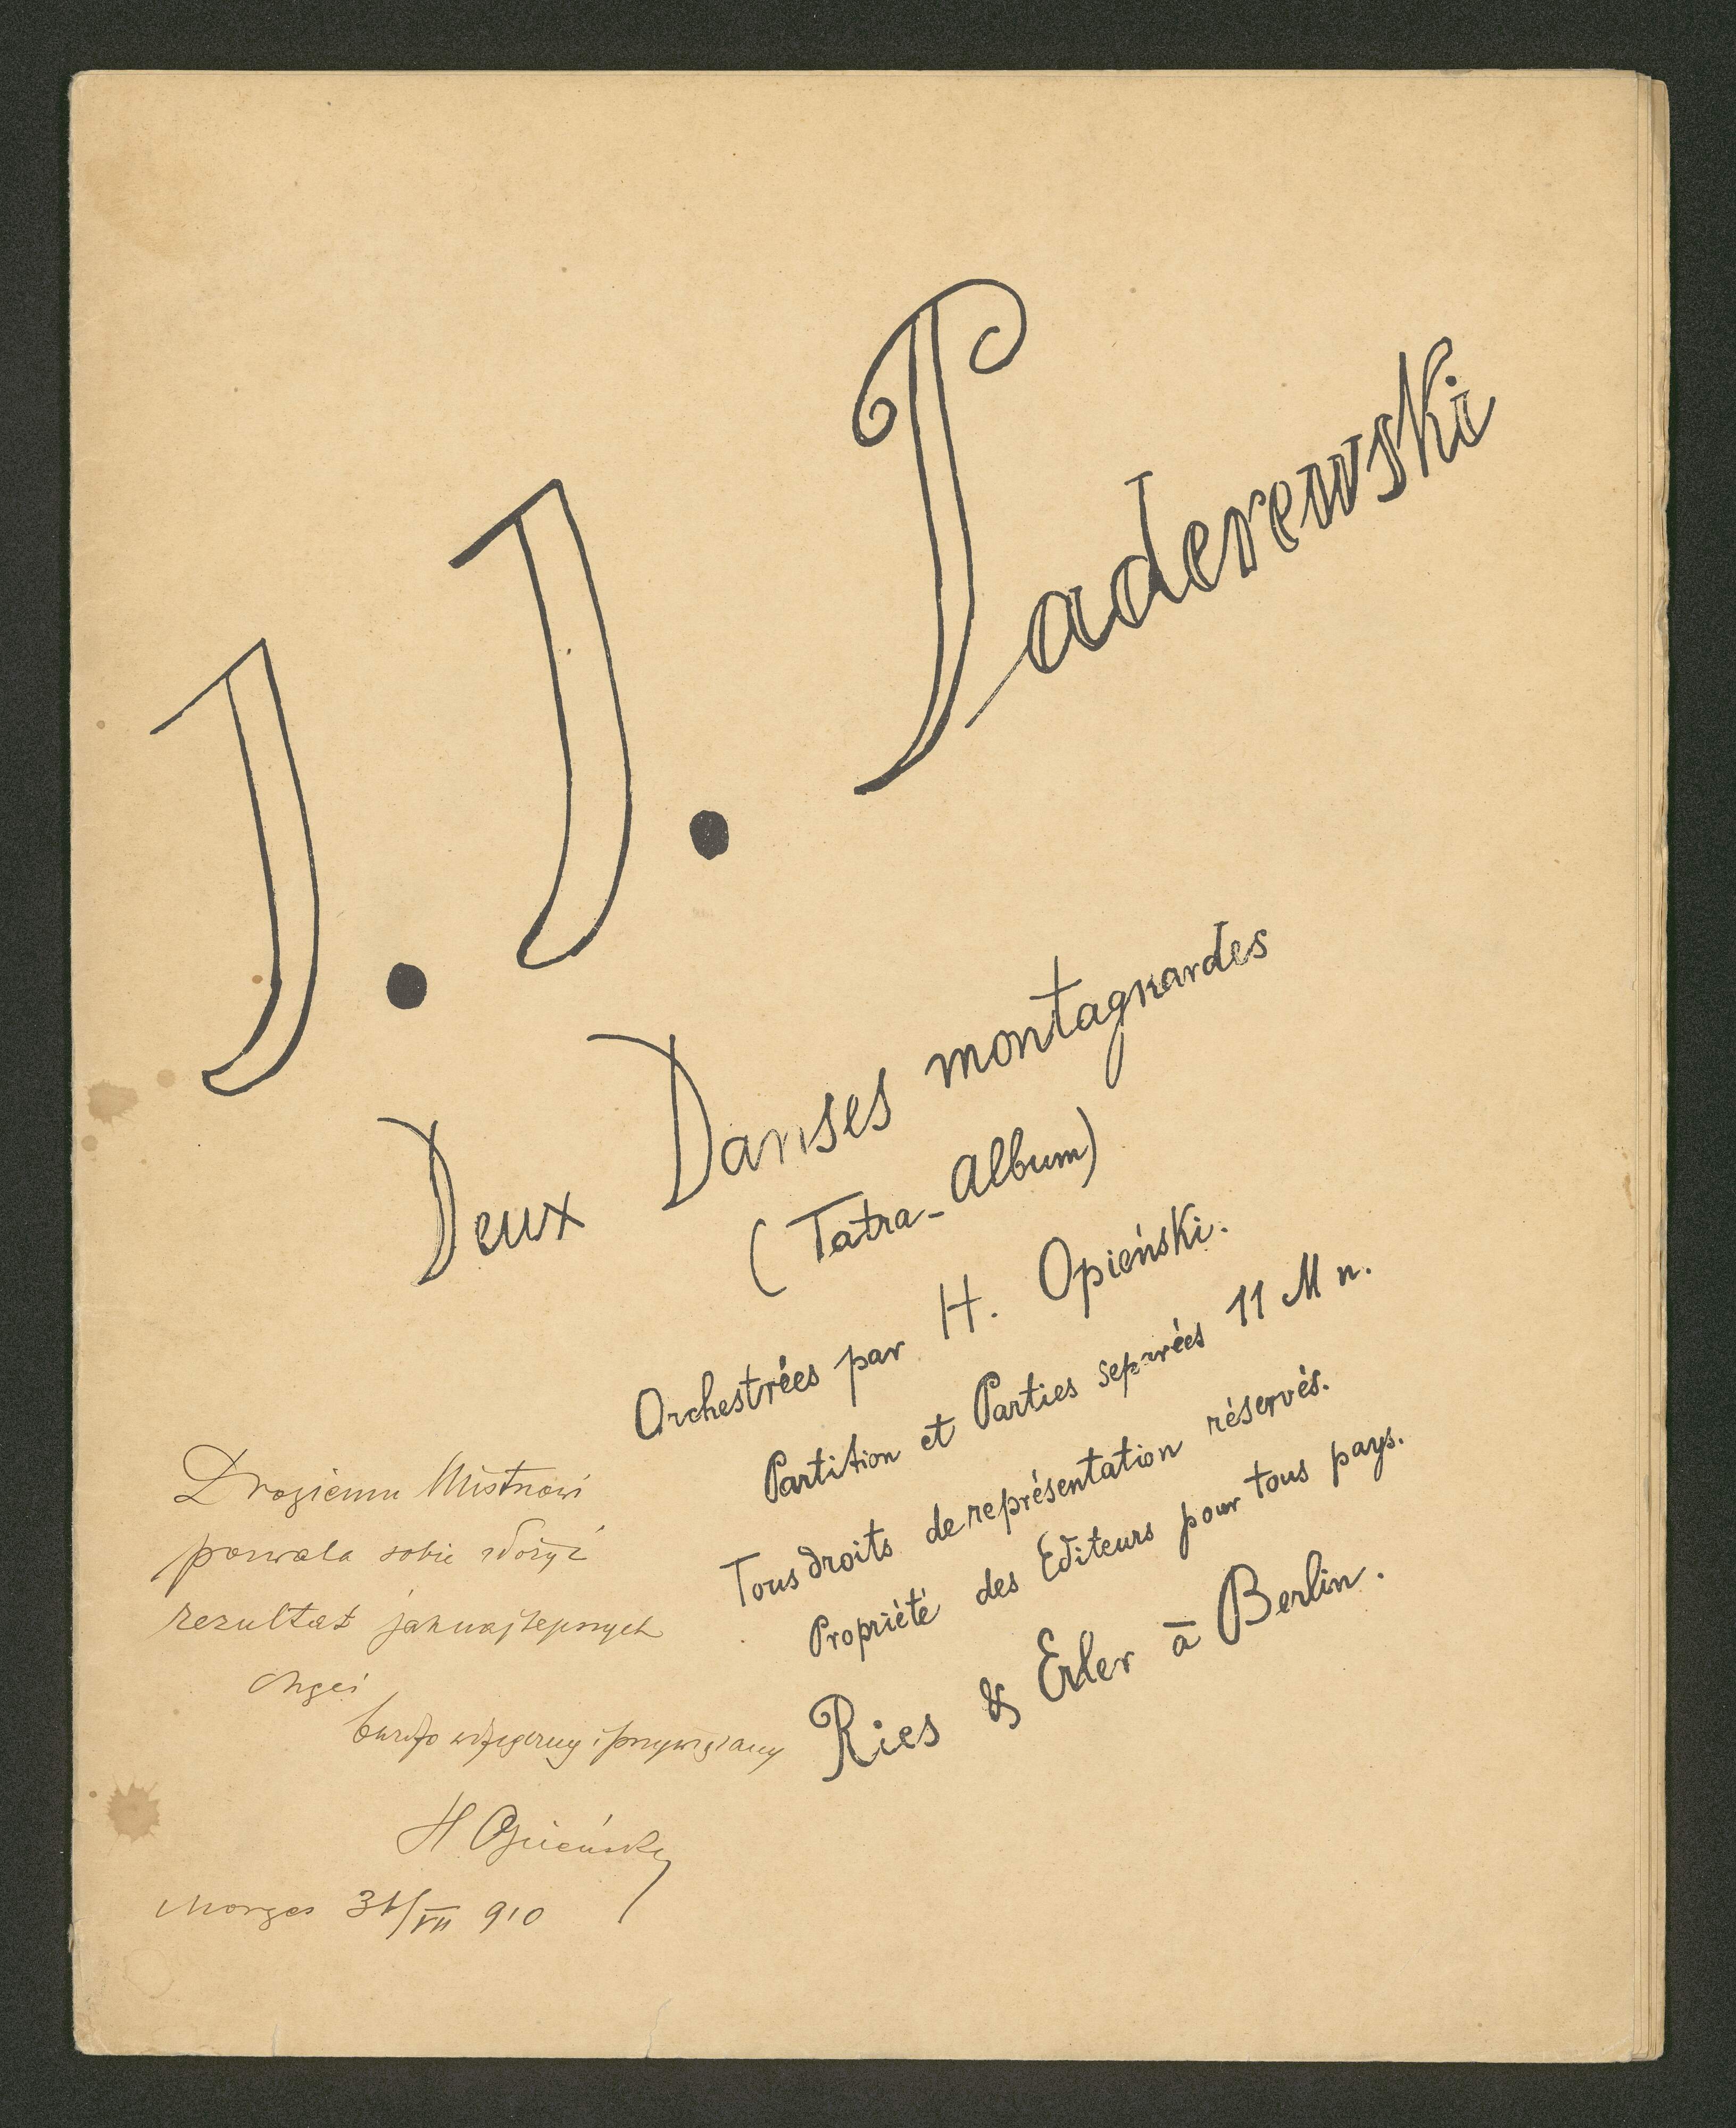 J. J. Paderewski
Deux Danses montagnardes
(Tatra-Album)
Orchestrées par H. Opieński.
Partition et Parties separées 11 M n.
Tous droits de représentation réservés.
Propriété des Editeurs pour tous pays.
Ries & Erler à Berlin.
Drogiemu Mistrzowi
pozwala sobie złożyć
rezultat jaknajlepszych
chęci
bardzo wdzięczny i przywiązany
H Opieński
Morges 31/VII 910